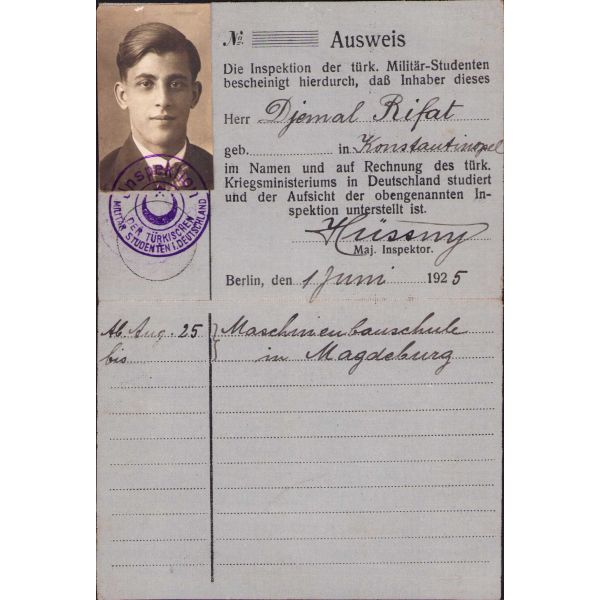 № Ausweis
Die Inspektion der türk. Militär-Studenten
bescheinigt hierdurch, daß Inhaber dieses
Herr Djemal Rifat
geb. in Konstantinopel
im Namen und auf Rechnung des türk.
Kriegsministeriums in Deutschland studiert
und der Aufsicht der obengenannten In-
spektion unterstellt ist.
Hüssny
Maj. Inspektor.
Berlin, den 1 Juni 1925
Inspektion
DER TÜRKISCHEN
MILITÄR STUDENTEN I. DEUTSCHLAND
Ab Aug. 25 Maschinenbauschule
bis in Magdeburg